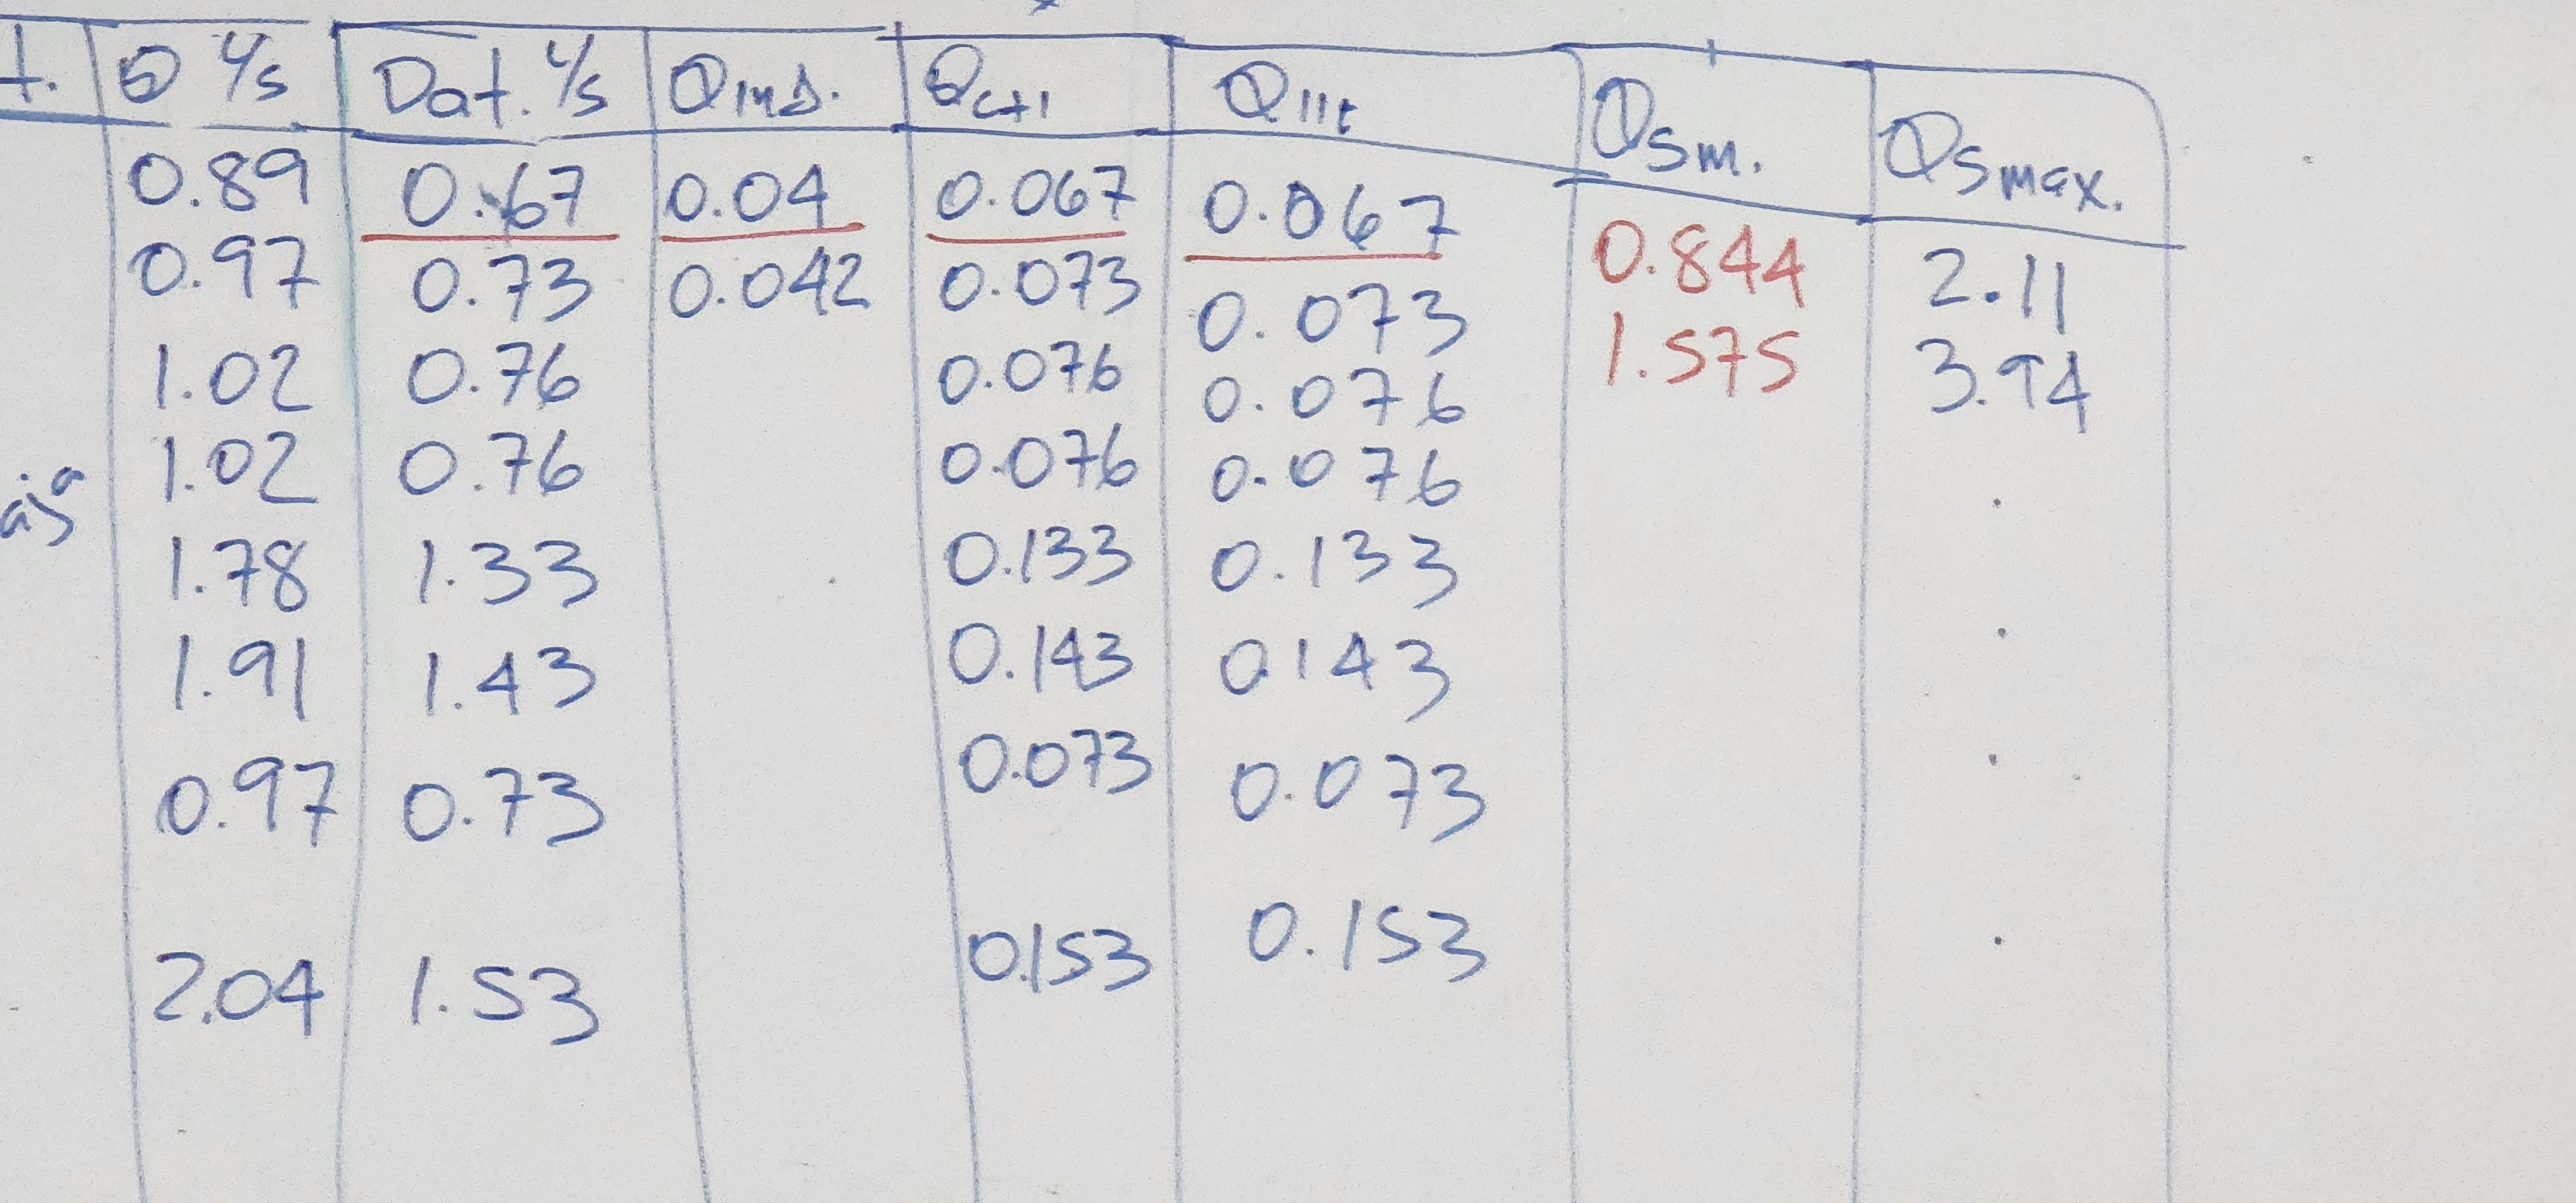 t. Q l/s Dat. l/s Qind. Qcti Qllt Qsm. Qsmax.
0.89 0.67 0.04 0.067 0.067 0.844 2.11
0.97 0.73 0.042 0.073 0.073 1.575 3.94
1.02 0.76 0.076 0.076
1.02 0.76 0.076 0.076
1.78 1.33 0.133 0.133
1.91 1.43 0.143 0143
0.97 0.73 0.073 0.073
2.04 1.53 0.153 0.153